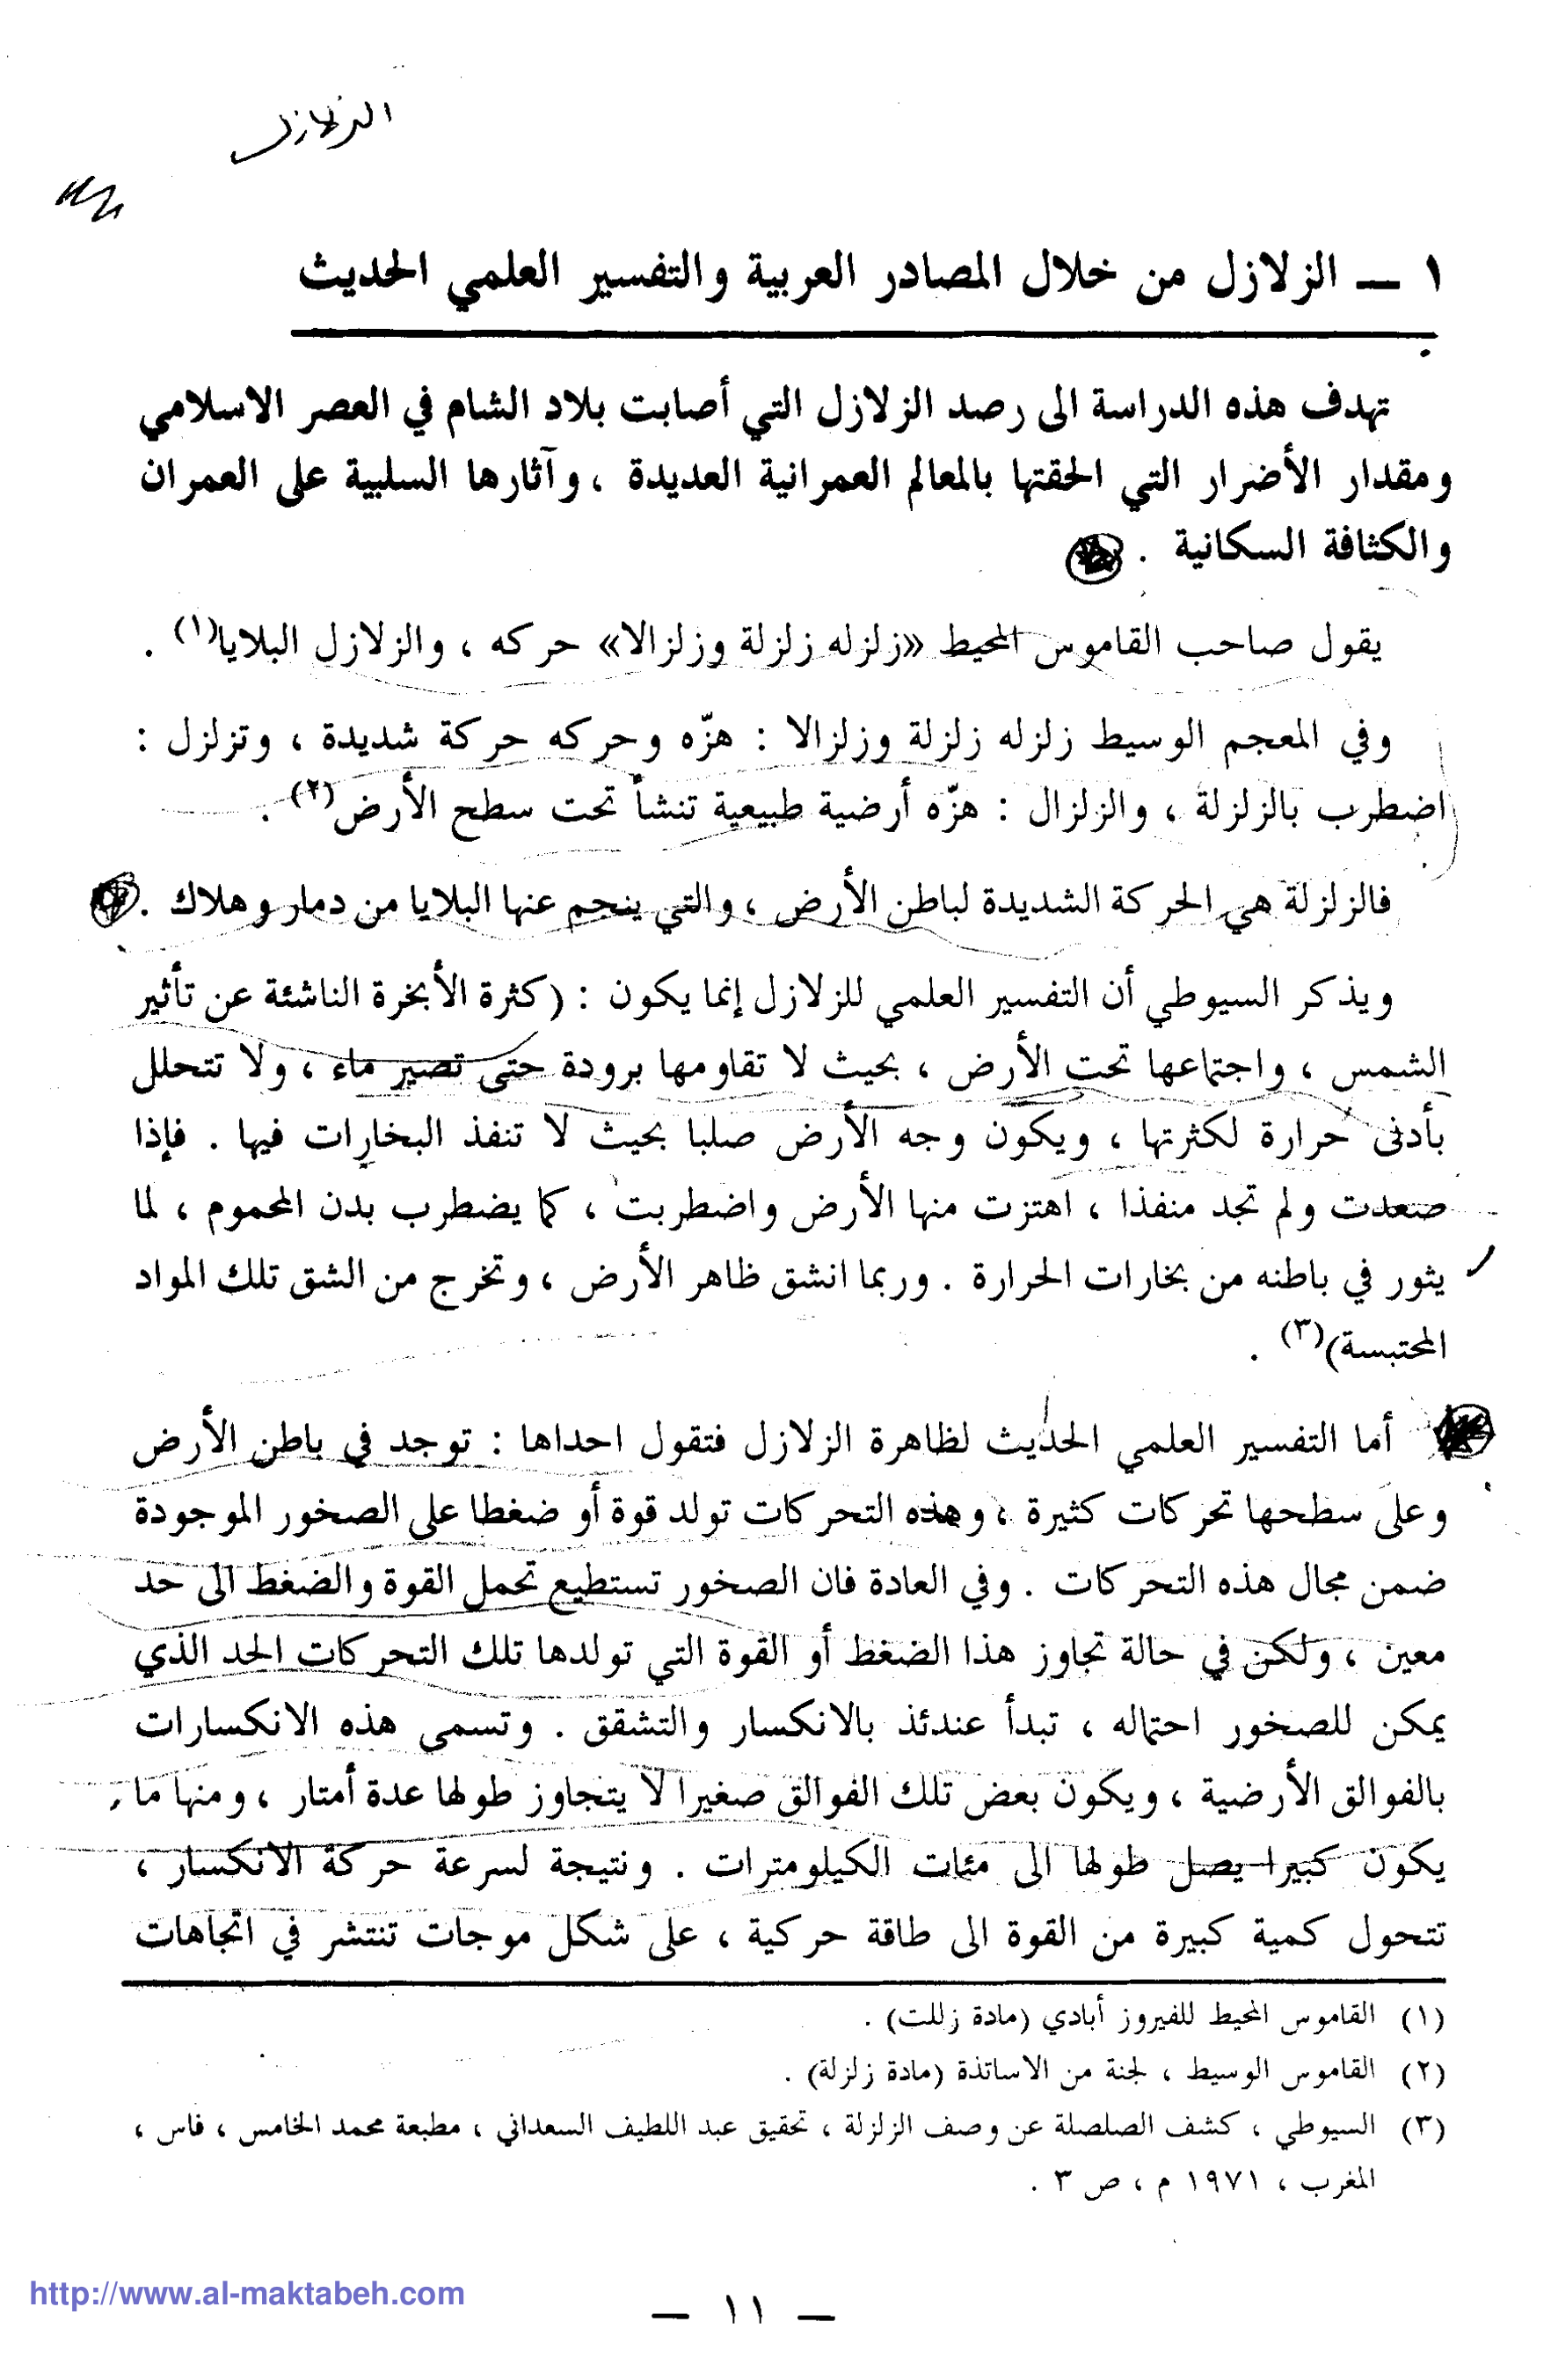 الزلازل
١ — الزلازل من خلال المصادر العربية والتفسير العلمي الحديث
تهدف هذه الدراسة الى رصد الزلازل التي أصابت بلاد الشام في العصر الاسلامي
ومقدار الأضرار التي الحقتها بالمعالم العمرانية العديدة ، وآثارها السلبية على العمران
والكثافة السكانية .
يقول صاحب القاموس المحيط «زلزله زلزلة وزلزالا» حركه ، والزلازل البلايا(١) .
وفي المعجم الوسيط زلزله زلزلة وزلزالا : هزّه وحركه حركة شديدة ، وتزلزل :
اضطرب بالزلزلة ، والزلزال : هزّه أرضية طبيعية تنشأ تحت سطح الأرض(٢) .
فالزلزلة هي الحركة الشديدة لباطن الأرض ، والتي ينجم عنها البلايا من دمار وهلاك .
ويذكر السيوطي أن التفسير العلمي للزلازل إنما يكون : (كثرة الأبخرة الناشئة عن تأثير
الشمس ، واجتماعها تحت الأرض ، بحيث لا تقاومها برودة حتى تصير ماء ، ولا تتحلل
بأدنى حرارة لكثرتها ، ويكون وجه الأرض صلبا بحيث لا تنفذ البخارات فيها . فإذا
صعدت ولم تجد منفذا ، اهتزت منها الأرض واضطربت ، كما يضطرب بدن المحموم ، لما
يثور في باطنه من بخارات الحرارة . وربما انشق ظاهر الأرض ، وتخرج من الشق تلك المواد
المحتبسة)(٣) .
أما التفسير العلمي الحديث لظاهرة الزلازل فتقول احداها : توجد في باطن الأرض
وعلى سطحها تحركات كثيرة ، وهذه التحركات تولد قوة أو ضغطا على الصخور الموجودة
ضمن مجال هذه التحركات . وفي العادة فان الصخور تستطيع تحمل القوة والضغط الى حد
معين ، ولكن في حالة تجاوز هذا الضغط أو القوة التي تولدها تلك التحركات الحد الذي
يمكن للصخور احتماله ، تبدأ عندئذ بالانكسار والتشقق . وتسمى هذه الانكسارات
بالفوالق الأرضية ، ويكون بعض تلك الفوالق صغيرا لا يتجاوز طولها عدة أمتار ، ومنها ما
يكون كبيرا يصل طولها الى مئات الكيلومترات . ونتيجة لسرعة حركة الانكسار ،
تتحول كمية كبيرة من القوة الى طاقة حركية ، على شكل موجات تنتشر في اتجاهات
(١) القاموس المحيط للفيروز أبادي (مادة زللت) .
(٢) القاموس الوسيط ، لجنة من الاساتذة (مادة زلزلة) .
(٣) السيوطي ، كشف الصلصلة عن وصف الزلزلة ، تحقيق عبد اللطيف السعداني ، مطبعة محمد الخامس ، فاس ،
المغرب ، ١٩٧١ م ، ص ٣ .
http://www.al-maktabeh.com
— ١١ —